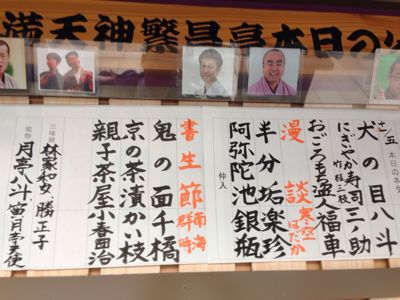 満天神繁昌亭本日の
本日のネタ
犬の目八斗
にぎやか寿司三ノ助
桂三枝
おごろもち盗人福車
漫談 寒空はだか
半分垢楽珍
仲入
阿弥陀池銀瓶
書生節 南海
鬼の面千橘
京の茶漬かい枝
親子茶屋小春団治
三味線
林家和女 勝正子
鳴物
月亭八斗 笛月亭天使